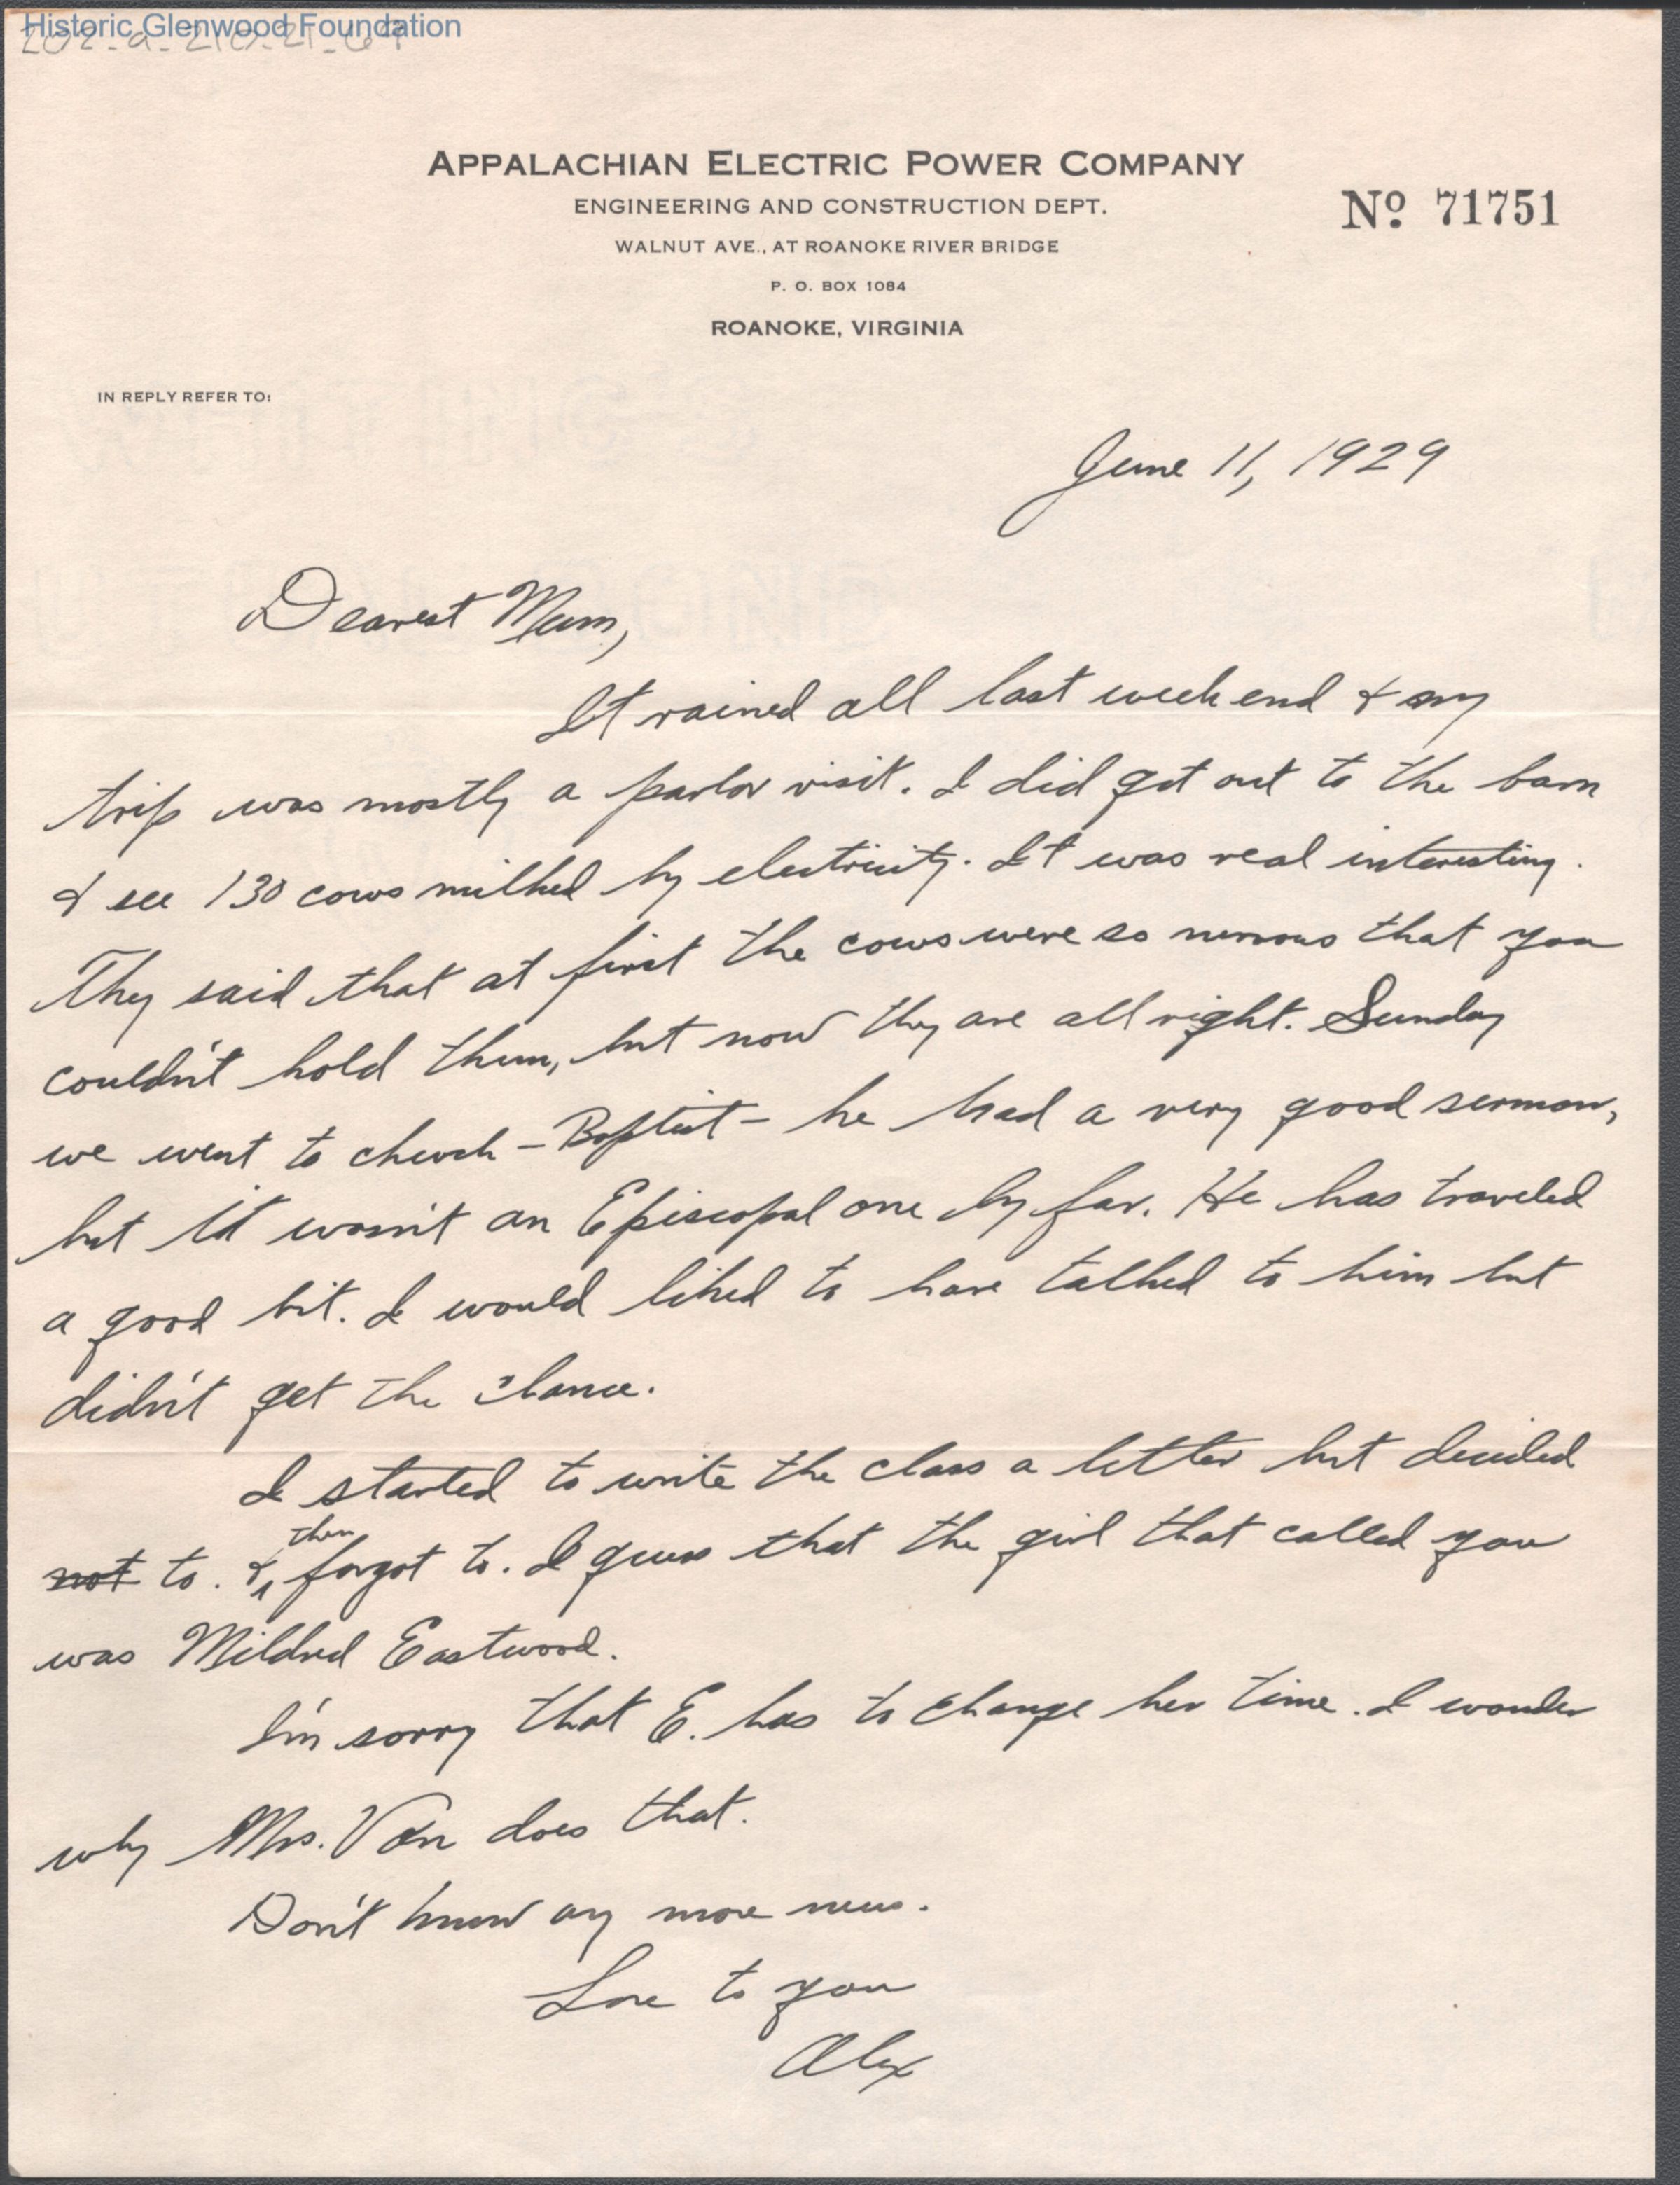 Historic Glenwood Foundation
APPALACHIAN ELECTRIC POWER COMPANY
ENGINEERING AND CONSTRUCTION DEPT.
WALNUT AVE., AT ROANOKE RIVER BRIDGE
P. O. BOX 1084
ROANOKE, VIRGINIA
No 71751
IN REPLY REFER TO:
June 11, 1929
Dearest Mum,
It rained all last week end & my
trip was mostly a parlor visit. I did get out to the barn
& see 130 cows milked by electricity. It was real interesting.
They said that at first the cows were so nervous that you
couldn't hold them, but now they are all right. Sunday
we went to church – Baptist – he had a very good sermon,
but it wasn't an Episcopal one by far. He has traveled
a good bit. I would liked to have talked to him but
didn't get the chance.
I started to write the class a letter but decided
not to. & then forgot to. I guess that the girl that called you
was Mildred Eastwood.
I'm sorry that E. has to change her time. I wonder
why Mrs. Van does that.
Don't know any more news.
Love to you
Alex